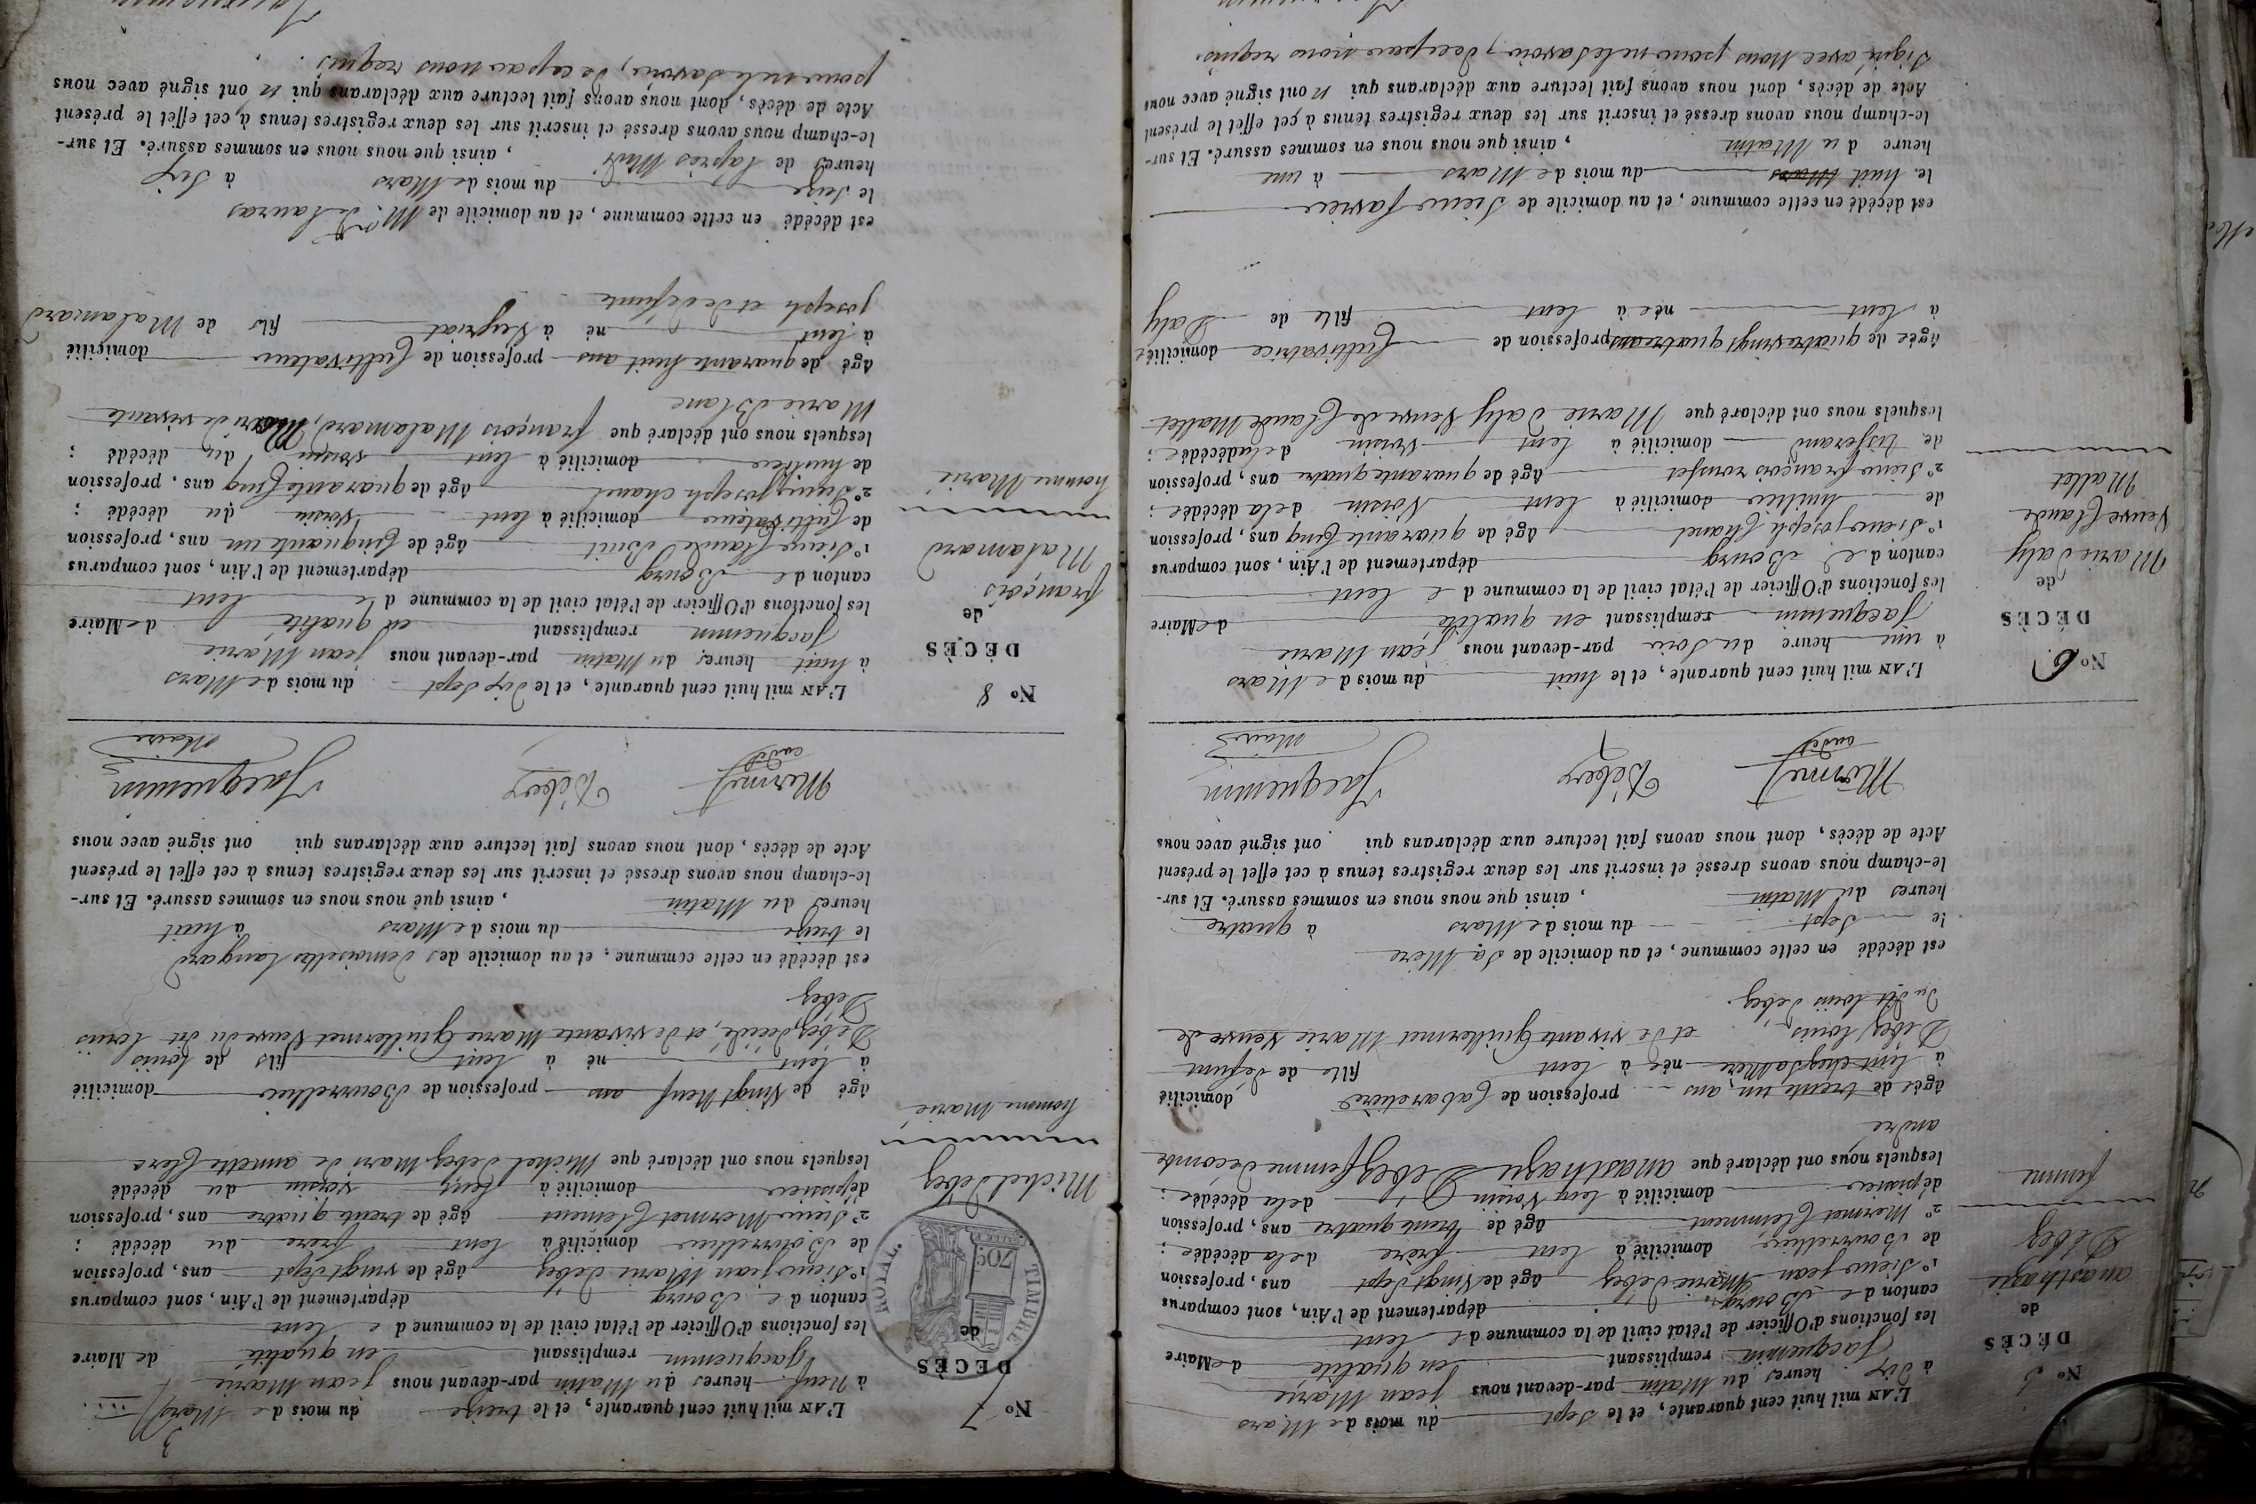 Nº 5
DÉCÈS
de
anasthazie
Debey
femme
L'AN mil huit cent quarante, et le Sept du mois de Mars
à Dix heures du Matin par-devant nous jean Marie
Jacquemin remplissant en qualité de Maire
les fonctions d'Officier de l'état civil de la commune de Lent
canton de Bourg département de l'Ain, sont comparus
1º Sieur jean Marie Debey âgé de Vingt Sept ans, profession
de Bourrellier domicilié à Lent frère de la décédée;
2º Mermet Clemment âgé de trente quatre ans, profession
d'épicier domicilié à Lent Voisin de la décédée;
lesquels nous ont déclaré que anasthazie Debey femme Decombe
andré
âgée de trente un ans profession de Cabaretière domicilié
à Lent chez sa Mère née à Lent fille de défunt
Debey Louis, et de vivante Guillermet Marie veuve de
du dit Louis Debey
est décédé en cette commune, et au domicile de Sa Mère
le Sept du mois de Mars à quatre
heures du Matin, ainsi que nous nous en sommes assuré. Et sur-
le-champ nous avons dressé et inscrit sur les deux registres tenus à cet effet le présent
Acte de décès, dont nous avons fait lecture aux déclarans qui ont signé avec nous
Mermet Debey Jacquemin
cadet Maire
Nº 6
DÉCÈS
de
Marie Daly
Veuve Claude
Mallet
L'AN mil huit cent quarante, et le huit du mois de Mars
à une heure du Soir par-devant nous jean Marie
Jacquemin remplissant en qualité de Maire
les fonctions d'Officier de l'état civil de la commune de Lent
canton de Bourg département de l'Ain, sont comparus
1º Sieur joseph Chanel âgé de quarante Cinq ans, profession
de huillier domicilié à Lent Voisin de la décédée;
2º Sieur françois âgé de quarante quatre ans, profession
de tisserand domicilié à Lent Voisin de la décédée;
lesquels nous ont déclaré que Marie Daly Veuve de Claude Mallet
âgée de quatrevingt quatre ans profession de Cultivatrice domiciliée
à Lent née à Lent fille de Daly
est décédé en cette commune, et au domicile de Sieur
le huit Mars du mois de Mars à une
heure du Matin, ainsi que nous nous en sommes assuré. Et sur-
le-champ nous avons dressé et inscrit sur les deux registres tenus à cet effet le présent
Acte de décès, dont nous avons fait lecture aux déclarans qui n'ont signé avec nous
Signé avec Nous pour ne le Savoir, de ce par nous requis.
Nº 7
DÉCÈS
de
Michel Debey
homme Marié
TIMBRE ROYAL.
70c
3
L'AN mil huit cent quarante, et le treize du mois de Mars
à Neuf heures du Matin par-devant nous jean Marie
Jacquemin remplissant en qualité de Maire
les fonctions d'Officier de l'état civil de la commune de Lent
canton de Bourg département de l'Ain, sont comparus
1º Sieur jean Marie Debey âgé de vingt Sept ans, profession
de Bourrellier domicilié à Lent frère du décédé;
2º Sieur Mermet Clement âgé de trente quatre ans, profession
d'épicier domicilié à Lent voisin du décédé
lesquels nous ont déclaré que Michel Debey Mari de annette
âgé de Vingt Neuf ans profession de Bourrellier domicilié
à Lent né à Lent fils de Louis
Debey, décédé, et de vivante Marie Guillermet Veuve du dit Louis
Debey
est décédé en cette commune, et au domicile des Demoiselles Langard
le treize du mois de Mars à huit
heures du Matin, ainsi que nous nous en sommes assuré. Et sur-
le-champ nous avons dressé et inscrit sur les deux registres tenus à cet effet le présent
Acte de décès, dont nous avons fait lecture aux déclarans qui ont signé avec nous
Mermet Debey Jacquemin
cadet Maire
Nº 8
DÉCÈS
de
françois
Malamard
homme Marié
L'AN mil huit cent quarante, et le Dix Sept du mois de Mars
à huit heures du Matin par-devant nous jean Marie
Jacquemin remplissant en qualité de Maire
les fonctions d'Officier de l'état civil de la commune de Lent
canton de Bourg département de l'Ain, sont comparus
1º Sieur Claude Buit âgé de Cinquante un ans, profession
de Cultivateur domicilié à Lent Voisin du décédé;
2º Sieur joseph Chanel âgé de quarante Cinq ans, profession
de huillier domicilié à Lent voisin du décédé;
lesquels nous ont déclaré que françois Malamard, Mari de vivante
Marie Blanc
âgé de quarante huit ans profession de Cultivateur domicilié
à Lent né à Seyriat fils de Malamard
joseph et de défunte
est décédé en cette commune, et au domicile de Mr. Delauras
le Seize du mois de Mars à Six
heures de l'après Midi, ainsi que nous nous en sommes assuré. Et sur-
le-champ nous avons dressé et inscrit sur les deux registres tenus à cet effet le présent
Acte de décès, dont nous avons fait lecture aux déclarans qui n'ont signé avec nous
pour ne le Savoir, de ce par nous requis.